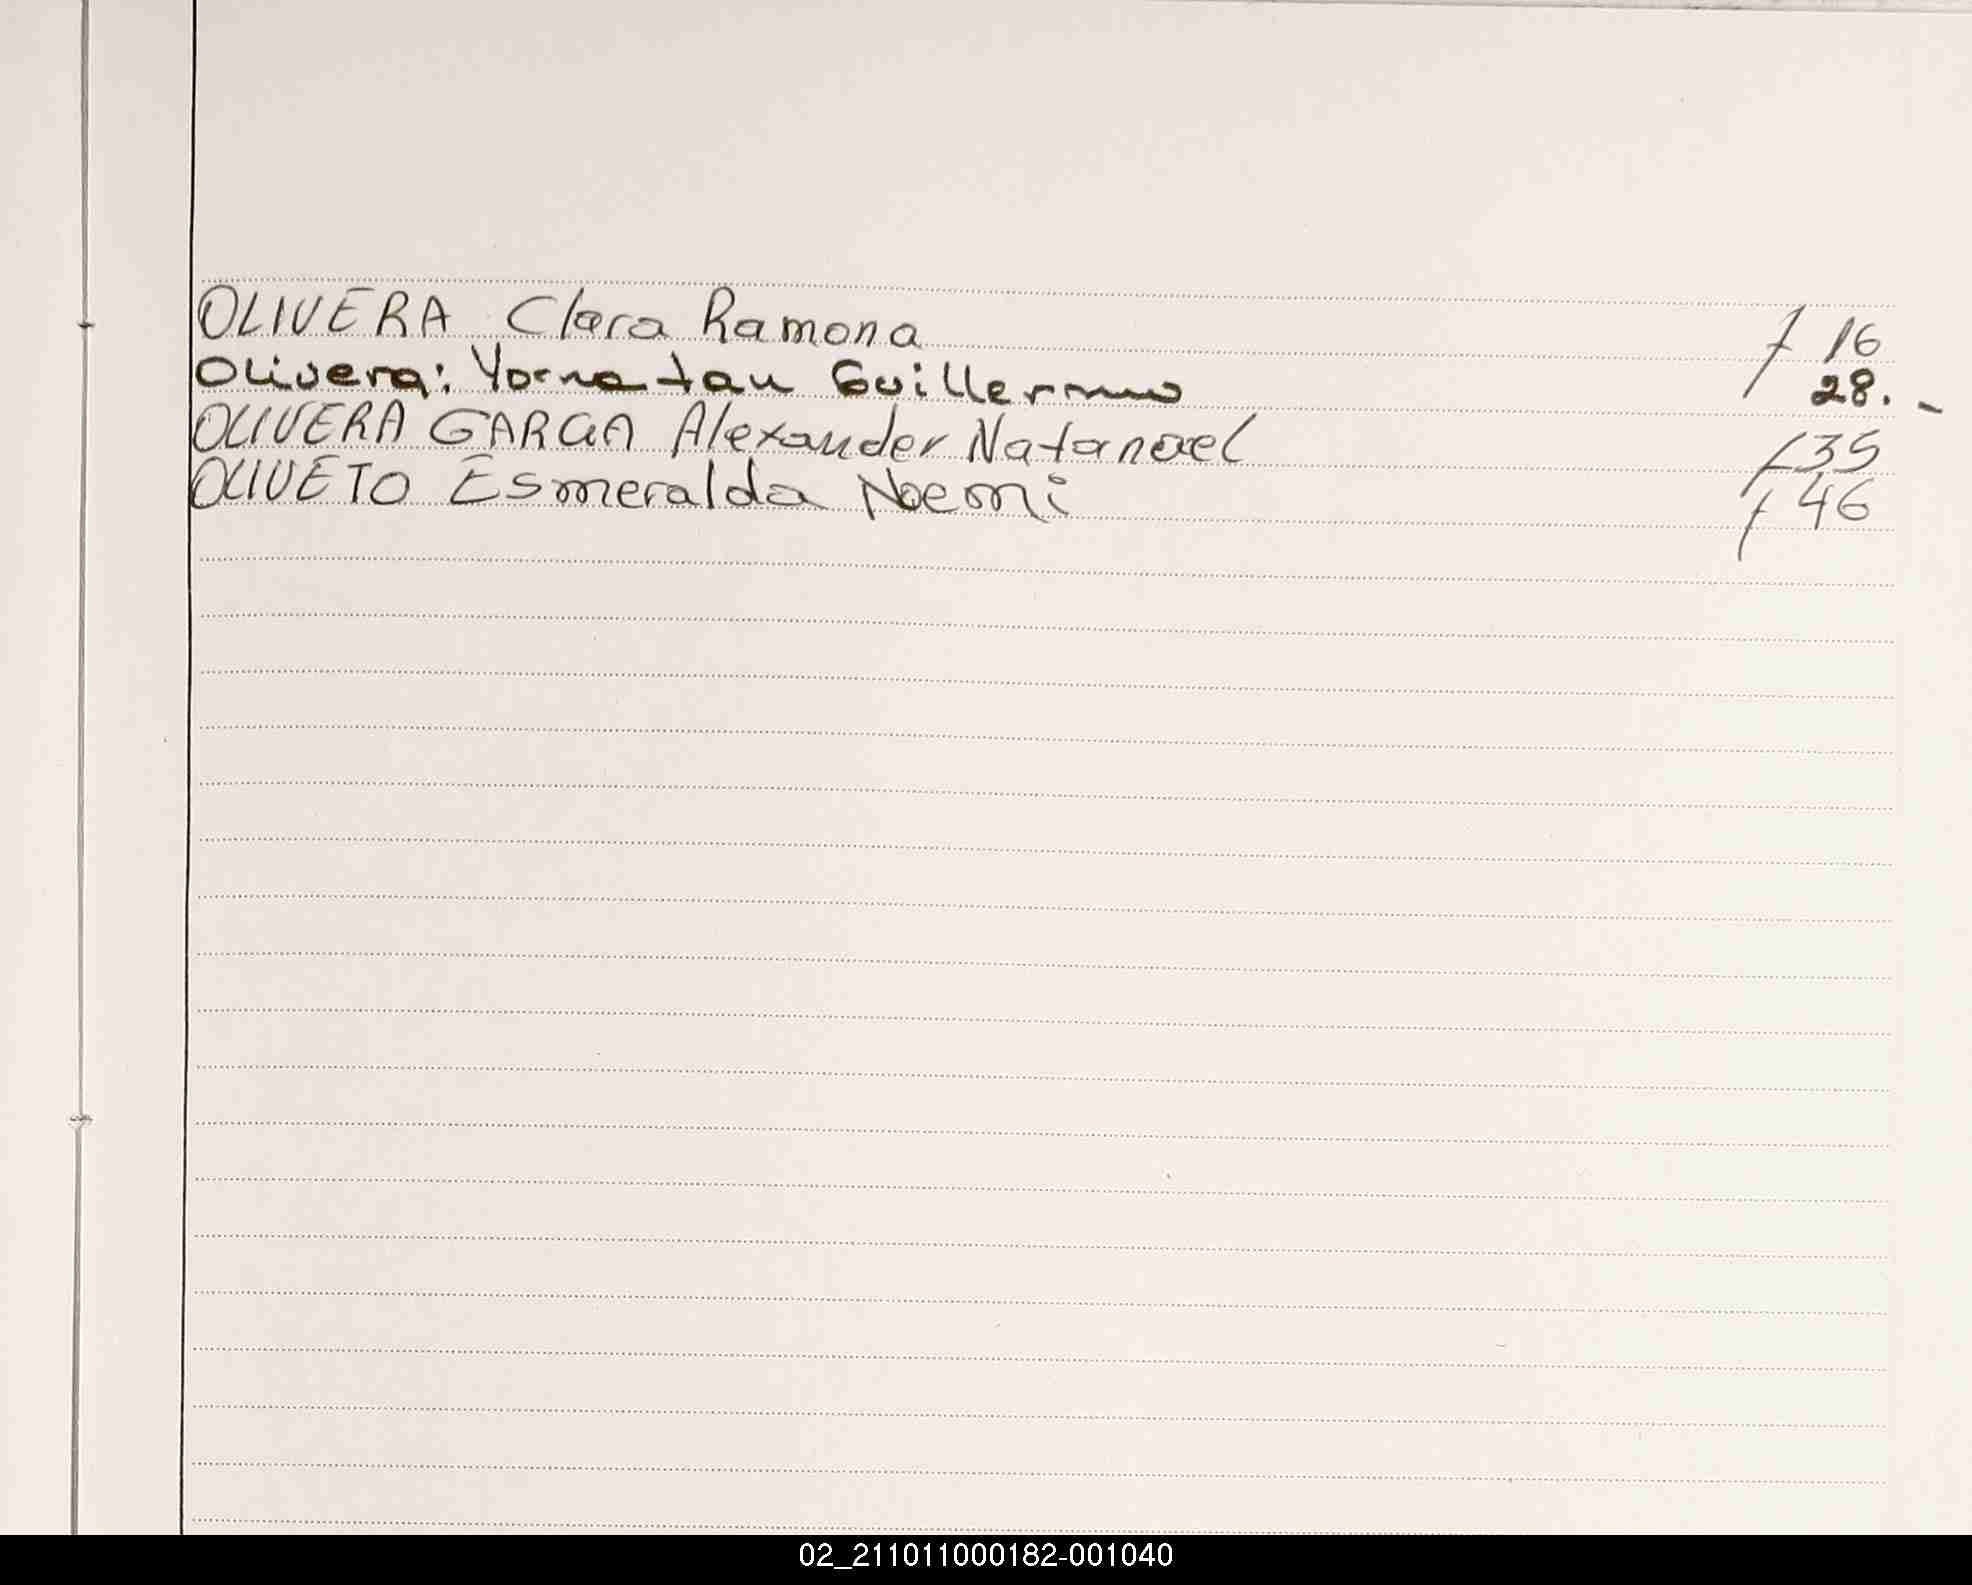 OLIVERA Clara Ramona f 16
Olivera: Yonatan Guillermo 28.-
OLIVERA GARCIA Alexander Natanael f 35
OLIVETO Esmeralda Noemi f 46
02_211011000182-001040